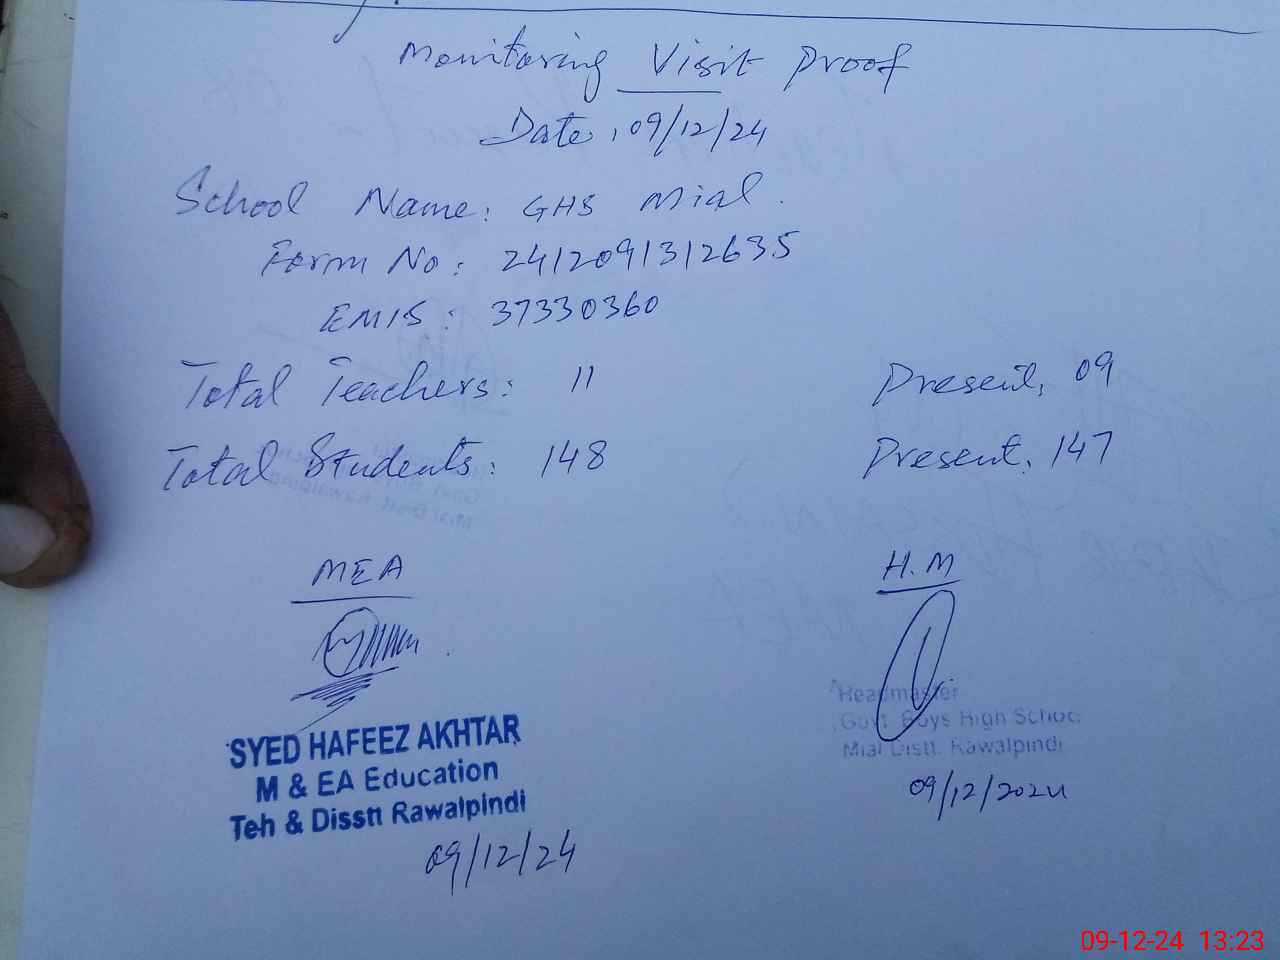 Monitoring Visit Proof
Date, 09/12/24
School Name: GHS Mial.
Form No: 2412091312635
EMIS: 37330360
Total Teachers: 11 Present, 09
Total Students: 148 Present, 147
MEA H.M
SYED HAFEEZ AKHTAR
M & EA Education
Teh & Disstt Rawalpindi
09/12/24
Headmaster
Govt. Boys High School
Mial Distt. Rawalpindi
09/12/2024
09-12-24 13:23